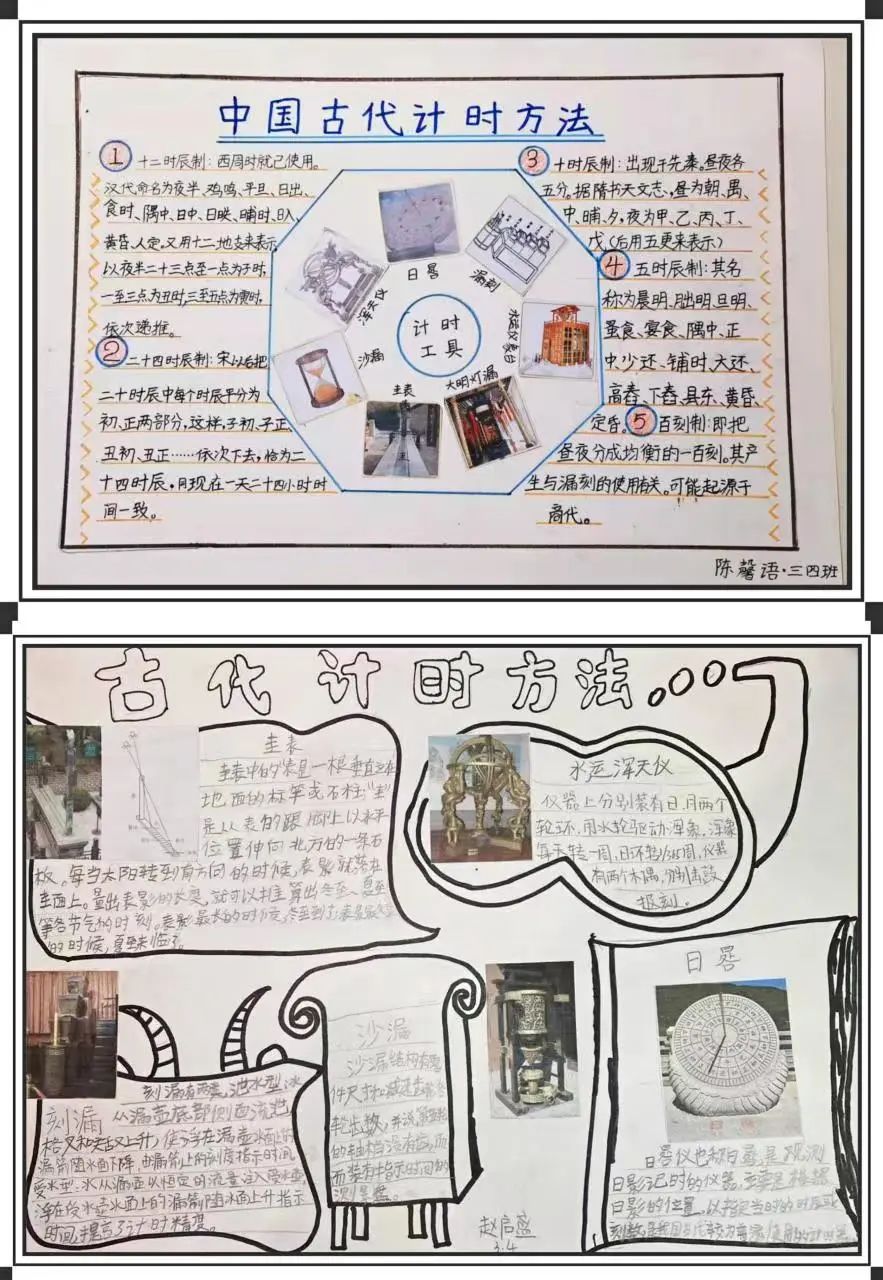 中国古代计时方法
① 十二时辰制：西周时就已使用。
汉代命名为夜半、鸡鸣、平旦、日出、
食时、隅中、日中、日昳、晡时、日入、
黄昏、人定。又用十二地支来表示，
以夜半二十三点至一点为子时，
一至三点为丑时，三至五点为寅时，
依次递推。
② 二十四时辰制：宋以后把
二十时辰中每个时辰平分为
初、正两部分，这样，子初、子正、
丑初、丑正……依次下去，恰为二
十四时辰，同现在一天二十四小时时
间一致。
日晷
漏刻
水运仪象台
大明灯漏
圭表
沙漏
浑天仪
计时
工具
③ 十时辰制：出现于先秦。昼夜各
五分。据隋书天文志，昼为朝、禺、
中、晡、夕，夜为甲、乙、丙、丁、
戊（后用五更来表示）
④ 五时辰制：其名
称为晨明、朏明、旦明、
蚤食、宴食、隅中、正
中、少还、铺时、大还、
高舂、下舂、县东、黄昏、
定昏。⑤ 百刻制：即把
昼夜分成均衡的一百刻。其产
生与漏刻的使用有关。可能起源于
商代。
陈馨语·三四班
古代计时方法
圭表
圭表中的"表"是一根垂直立在
地面的标竿或石柱；"圭"
是从表的跟脚上以水平
位置伸向北方的一条石
板。每当太阳转到南方向的时候，表影就落在
圭面上。量出表影的长度，就可以推算出冬至、夏至
等各节气的时刻。表影最长的时候，冬至到了；表影最
的时候，夏至来临了。
水运浑天仪
仪器上分别装有日、月两个
轮环，用水轮驱动浑象，浑象
每天转一周，日环转1/365周，仪器
有两个木偶，分别击鼓
报刻。
刻漏
刻漏有两类，泄水型：水
从漏壶底部侧面流泄，
格叉和关舌又上升，使浮在漏壶水面上的
漏箭随水面下降，由漏箭上的刻度指示时间。
受水型：水从漏壶以恒定的流量注入受水壶，
浮在受水壶水面上的漏箭随水面上升指示
时间，提高了计时精度。
沙漏
沙漏结构有零
件尺寸和减速齿轮各
轮齿数，并说第五轮
的轴梢没有齿，而
而装有指示时间的
测景盘。
赵启盛
3.4
日晷
日晷仪也称日晷，是观测
日影记时的仪器，主要是根据
日影的位置，以指定当时的时辰或
刻数，是我国古代较为普遍使用的计时